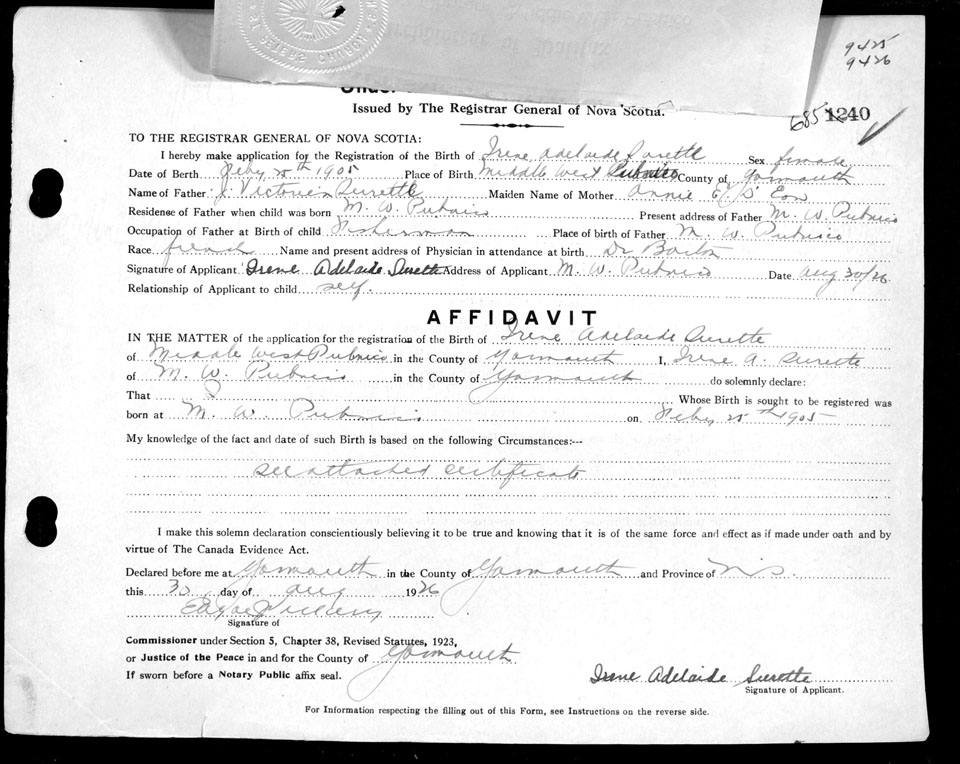 9425
9426
Issued by The Registrar General of Nova Scotia.
685 1240
TO THE REGISTRAR GENERAL OF NOVA SCOTIA:
I hereby make application for the Registration of the Birth of Irene Adelaide Surette Sex female
Date of Berth Feby 25th 1905 Place of Birth Middle West Pubnico County of Yarmouth
Name of Father J. Victorien Surette Maiden Name of Mother Annie E. D'Eon
Residense of Father when child was born M. W. Pubnico Present address of Father M. W. Pubnico
Occupation of Father at Birth of child Fisherman Place of birth of Father M. W. Pubnico
Race french Name and present address of Physician in attendance at birth Dr
Signature of Applicant Irene Adelaide Surette Address of Applicant M. W. Pubnico Date Aug 30/26
Relationship of Applicant to child self.
AFFIDAVIT
IN THE MATTER of the application for the registration of the Birth of Irene Adelaide Surette
of Middle West Pubnico in the County of Yarmouth I, Irene A. Surette
of M. W. Pubnico in the County of Yarmouth do solemnly declare:
That Whose Birth is sought to be registered was
born at M. W. Pubnico on Feby 25th 1905
My knowledge of the fact and date of such Birth is based on the following Circumstances:--
see attached certificate
I make this solemn declaration conscientiously believing it to be true and knowing that it is of the same force and effect as if made under oath and by
virtue of The Canada Evidence Act.
Declared before me at Yarmouth in the County of Yarmouth and Province of N.S.
this 30 day of Aug 1926
Signature of
Commissioner under Section 5, Chapter 38, Revised Statutes, 1923,
or Justice of the Peace in and for the County of Yarmouth
If sworn before a Notary Public affix seal.
Irene Adelaide Surette
Signature of Applicant.
For Information respecting the filling out of this Form, see Instructions on the reverse side.